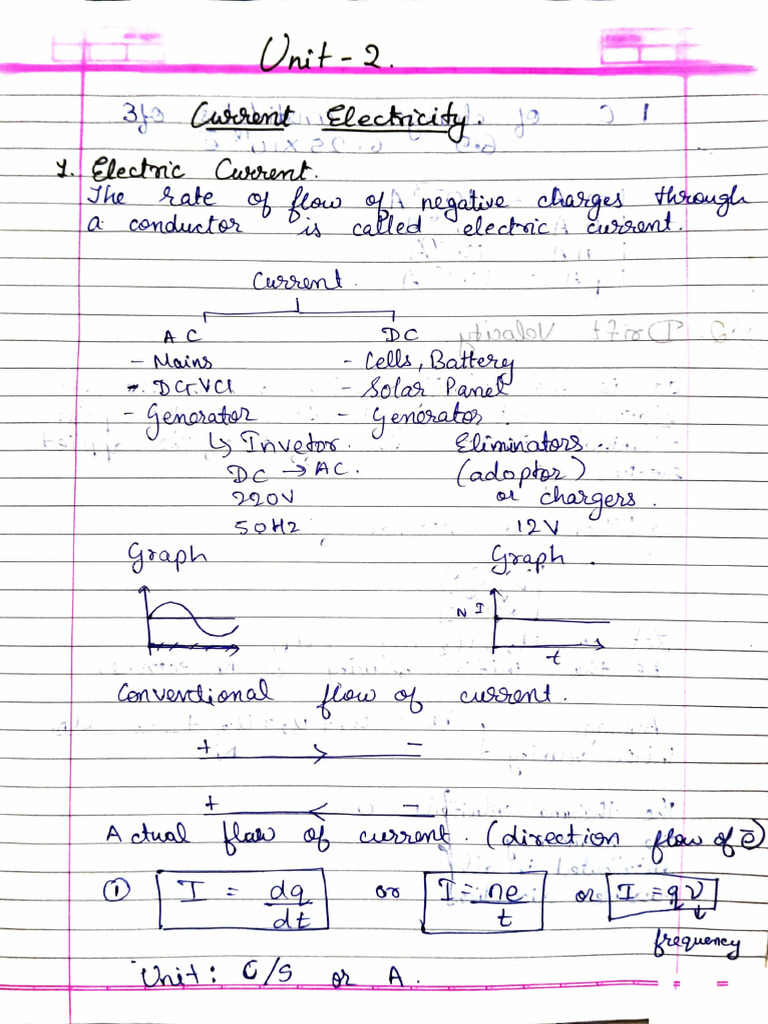 Unit - 2.
Current Electricity.
1. Electric Current.
The rate of flow of negative charges through
a conductor is called electric current.
Current
AC DC
- Mains - Cells, Battery
- Solar Panel
- Generator - Generator
↳ Invetor Eliminators
DC → AC. (adoptor)
220V or chargers.
50Hz 12V
Graph Graph.
N I
t
Conventional flow of current.
+ -
+ -
Actual flow of current. (direction flow of ē)
① I = dq/dt or I = ne/t or I = qν
frequency
Unit: C/S or A.